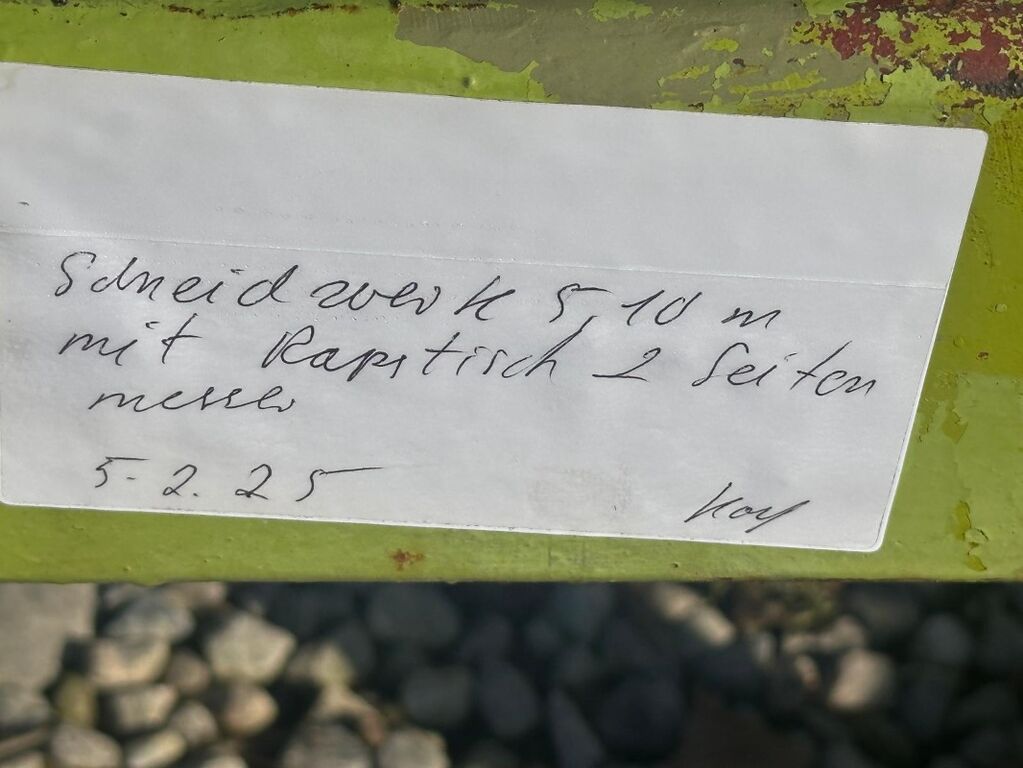 Schneidwerk 5,10 m
mit Rapstisch 2 Seiten
messer
5.2.25